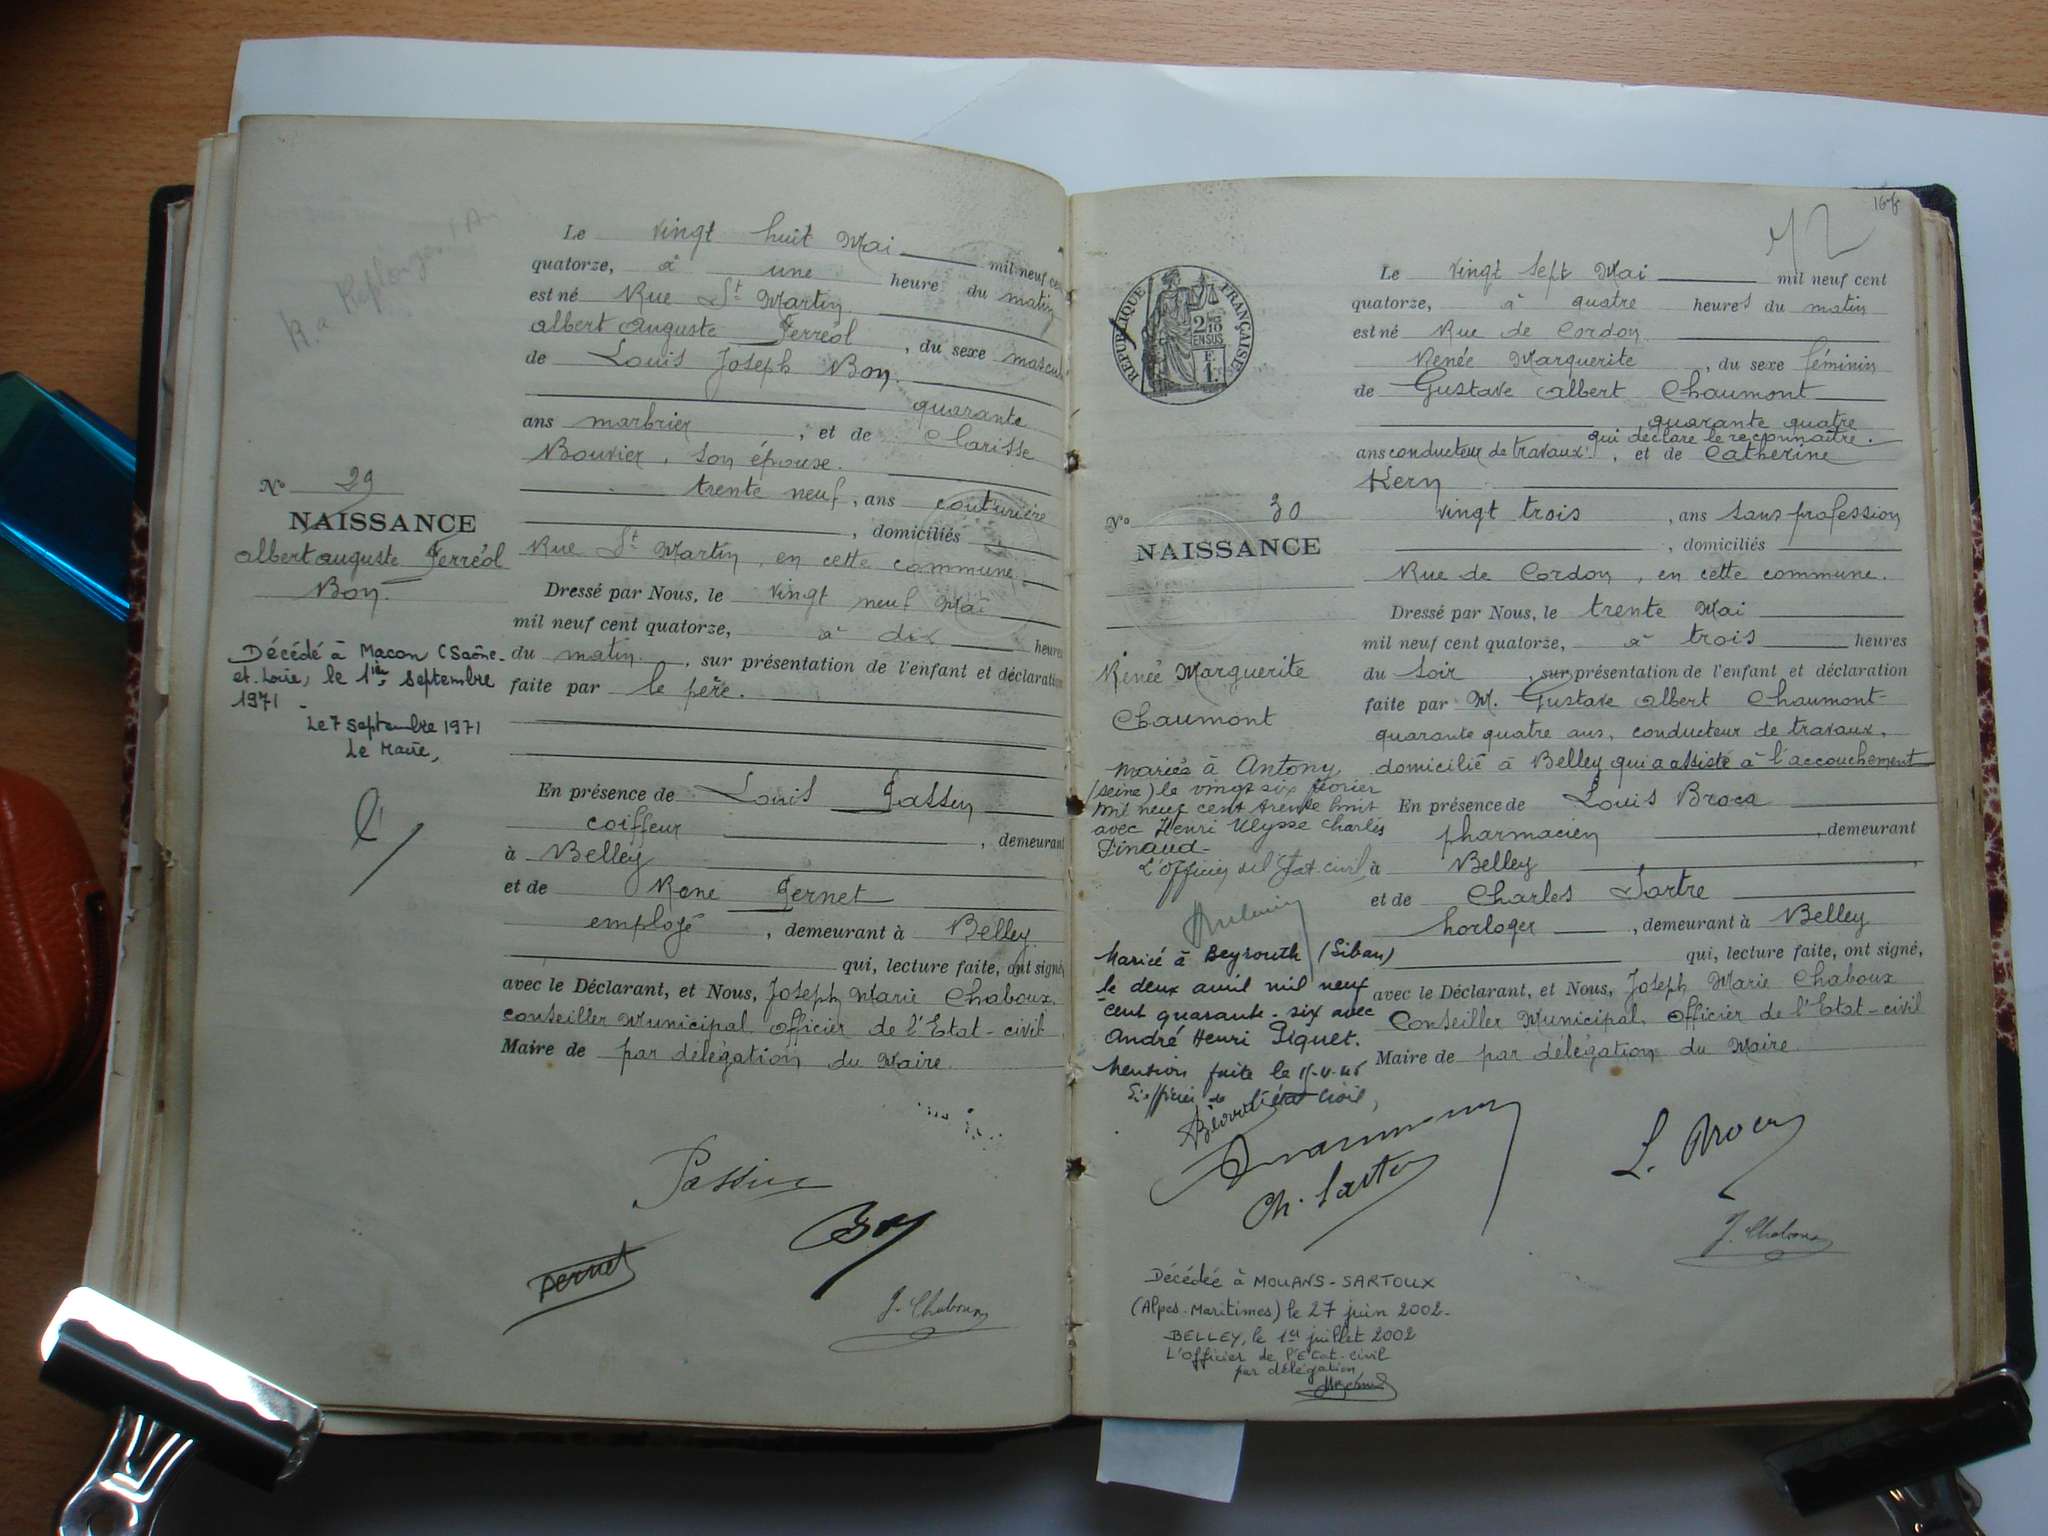 Le vingt huit Mai mil neuf cent
quatorze, à une heure du matin
est né Rue St Martin
Albert Auguste Ferréol, du sexe mascu
de Louis Joseph Bon
quarante
ans marbrier, et de Clarisse
Bouvier, son épouse.
trente neuf, ans couturière
, domiciliés
Rue St Martin, en cette commune.
Dressé par Nous, le vingt neuf Mai
mil neuf cent quatorze, à dix heures
du matin, sur présentation de l'enfant et déclaration
faite par le père.
En présence de Louis
coiffeur, demeurant
à Belley
et de René Pernet
employé, demeurant à Belley
qui, lecture faite, ont signé,
avec le Déclarant, et Nous, Joseph Marie Chaboux,
conseiller Municipal officier de l'Etat-civil
Maire de par délégation du Maire.
No 29
NAISSANCE
Albert Auguste Ferréol
Bon.
Décédé à Macon (Saône-
et-Loire) le 1ier septembre
1971
Le 7 septembre 1971
Le Maire,
Pernet
Bon
J. Chaboux
RÉPUBLIQUE FRANÇAISE
2/10
EN SUS
F.
1.
72
Le vingt sept Mai mil neuf cent
quatorze, à quatre heures du matin
est né Rue de Cordon
Renée Marguerite, du sexe féminin
de Gustave Albert Chaumont
quarante quatre
qui déclare le reconnaître.
ans conducteur de travaux, et de Catherine
Kern
vingt trois, ans sans profession
, domiciliés
Rue de Cordon, en cette commune.
Dressé par Nous, le trente Mai
mil neuf cent quatorze, à trois heures
du soir, sur présentation de l'enfant et déclaration
faite par M. Gustave Albert Chaumont-
quarante quatre ans, conducteur de travaux,
domicilié à Belley qui a assisté à l'accouchement
En présence de Louis Broca
pharmacien, demeurant
à Belley
et de Charles Sartre
horloger, demeurant à Belley
qui, lecture faite, ont signé,
avec le Déclarant, et Nous, Joseph Marie Chaboux
Conseiller Municipal, Officier de l'Etat-civil
Maire de par délégation du Maire.
No 30
NAISSANCE
Renée Marguerite
Chaumont
Mariée à Antony
(Seine) le vingt six février
mil neuf cent trente huit
avec Henri Ulysse Charles
Pinaud-
L'Officier de l'Etat civil
Mariée à Beyrouth (Liban)
le deux avril mil neuf
cent quarante-six avec
André Henri Piquet.
Mention faite le
L'officier de l'état civil,
L. Broca
Ch. Sartre
J. Chaboux
Décédée à MOUANS-SARTOUX
(Alpes-Maritimes) le 27 juin 2002-
BELLEY, le 1er juillet 2002
L'Officier de l'Etat-civil
par délégation